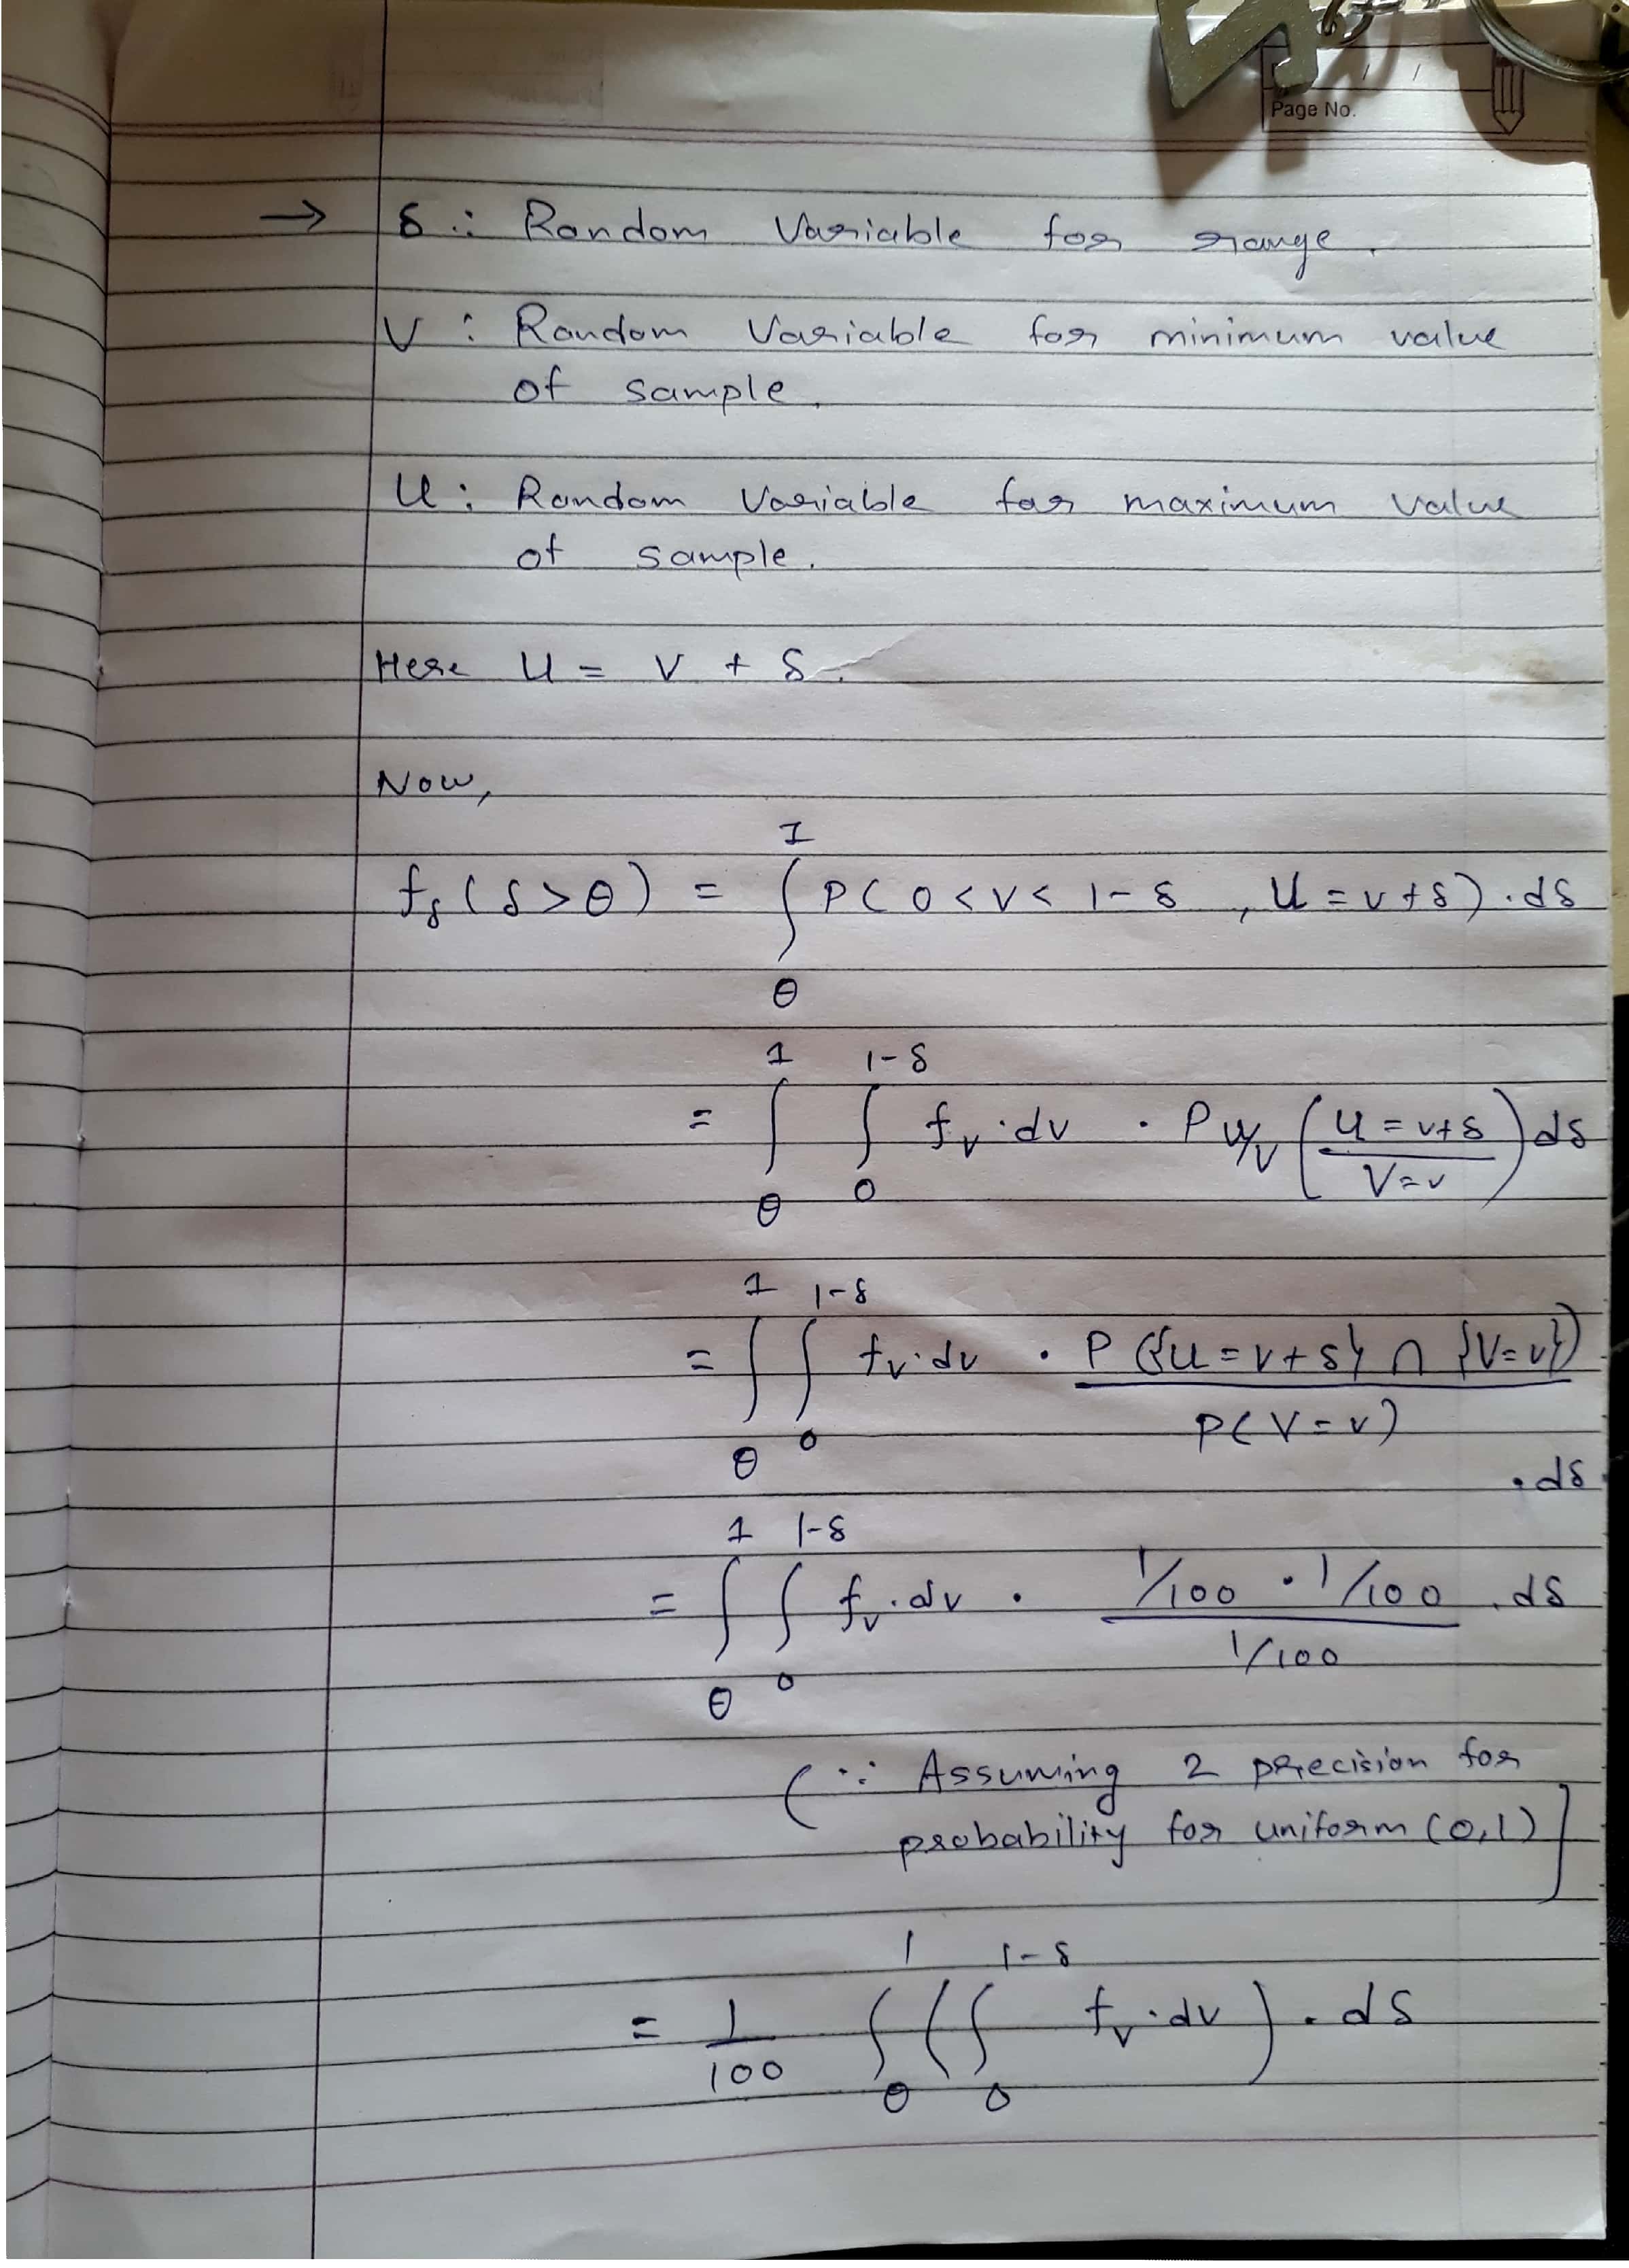 Page No.
→ δ : Random Variable for range.
V : Random Variable for minimum value
of sample.
U : Random Variable for maximum value
of sample.
Here U = V + δ.
Now,
f_δ (δ > θ) = ∫_θ^1 P( 0 < V < 1-δ , U = v+δ) . dδ
= ∫_θ^1 ∫_0^{1-δ} f_v . dv . P_{U/V} ( (U = v+δ) / (V = v) ) dδ
= ∫_θ^1 ∫_0^{1-δ} f_v . dv . P({U = v+δ} ∩ {V = v}) / P(V = v) . dδ
= ∫_θ^1 ∫_0^{1-δ} f_v . dv . (1/100 . 1/100) / (1/100) . dδ
( ∵ Assuming 2 precision for
probability for uniform (0,1) ]
= 1/100 ∫_θ^1 ( ∫_0^{1-δ} f_v . dv ) . dδ